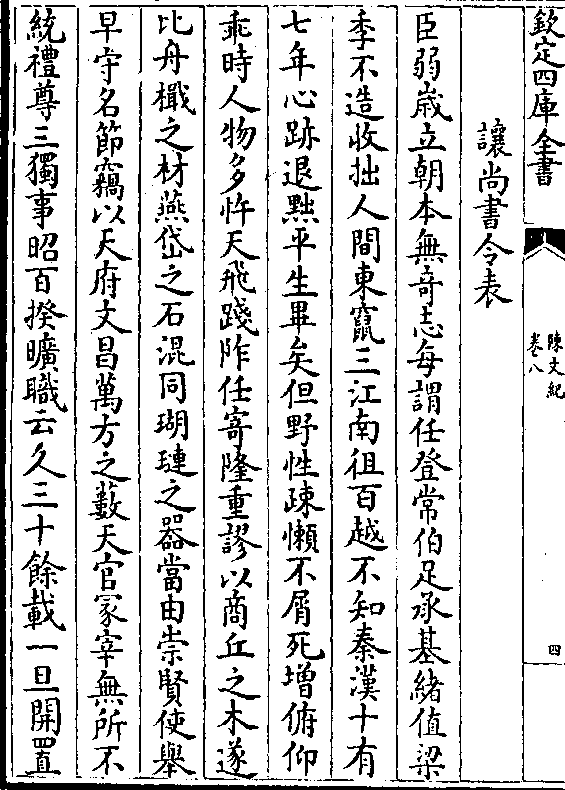 欽定四庫全書
陳文紀
卷八
四
讓尚書令表
臣弱嵗立朝本無奇志每謂任登常伯足承基緒值梁
季不造收拙人間東竄三江南徂百越不知秦漢十有
七年心跡退黜平生畢矣但野性疎懶不屑死增俯仰
乖時人物多忤天飛踐阼任寄隆重謬以商丘之木遂
比舟檝之材燕岱之石混同瑚璉之器當由崇賢使舉
早守名節竊以天府文昌萬方之藪天官冢宰無所不
統禮尊三獨事昭百揆曠職云久三十餘載一旦開置